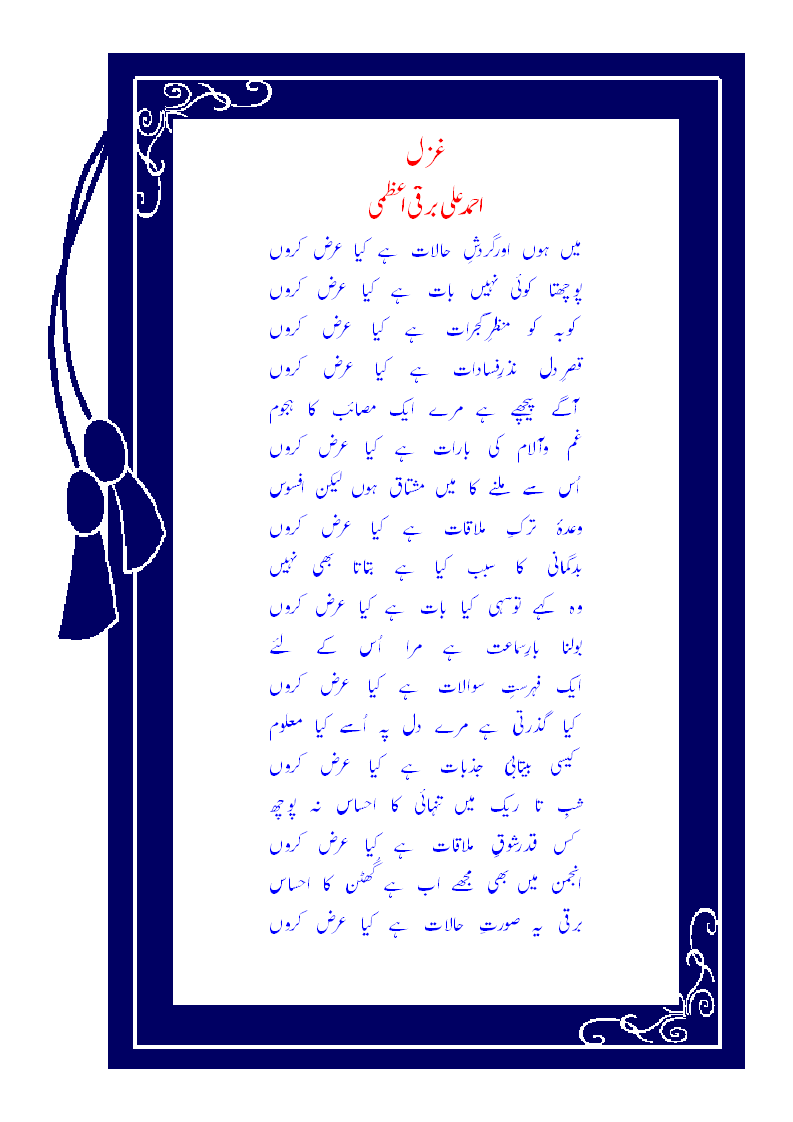 غزل
احمد علی برقی اعظمی
میں ہوں اورگردشِ حالات ہے کیا عرض کروں
پوچھتا کوئی نہیں بات ہے کیا عرض کروں
کوبہ کو منظرِگجرات ہے کیا عرض کروں
قصرِ دل نذرِفسادات ہے کیا عرض کروں
آگے پیچھے ہے مرے ایک مصائب کا ہجوم
غم وآلام کی بارات ہے کیا عرض کروں
اُس سے ملنے کا میں مشتاق ہوں لیکن افسوس
وعدۂ ترکِ ملاقات ہے کیا عرض کروں
بدگمانی کا سبب کیا ہے بتاتا بھی نہیں
وہ کہے توسہی کیا بات ہے کیا عرض کروں
بولنا بارِساعت ہے مرا اُس کے لئے
ایک فہرستِ سوالات ہے کیا عرض کروں
کیا گذرتی ہے مرے دل پہ اُسے کیا معلوم
کیسی بیتابیٔ جذبات ہے کیا عرض کروں
شبِ تا ریک میں تنہائی کا احساس نہ پوچھ
کس قدرشوقِ ملاقات ہے کیا عرض کروں
انجمن میں بھی مجھے اب ہے گھُٹن کا احساس
برقی یہ صورتِ حالات ہے کیا عرض کروں